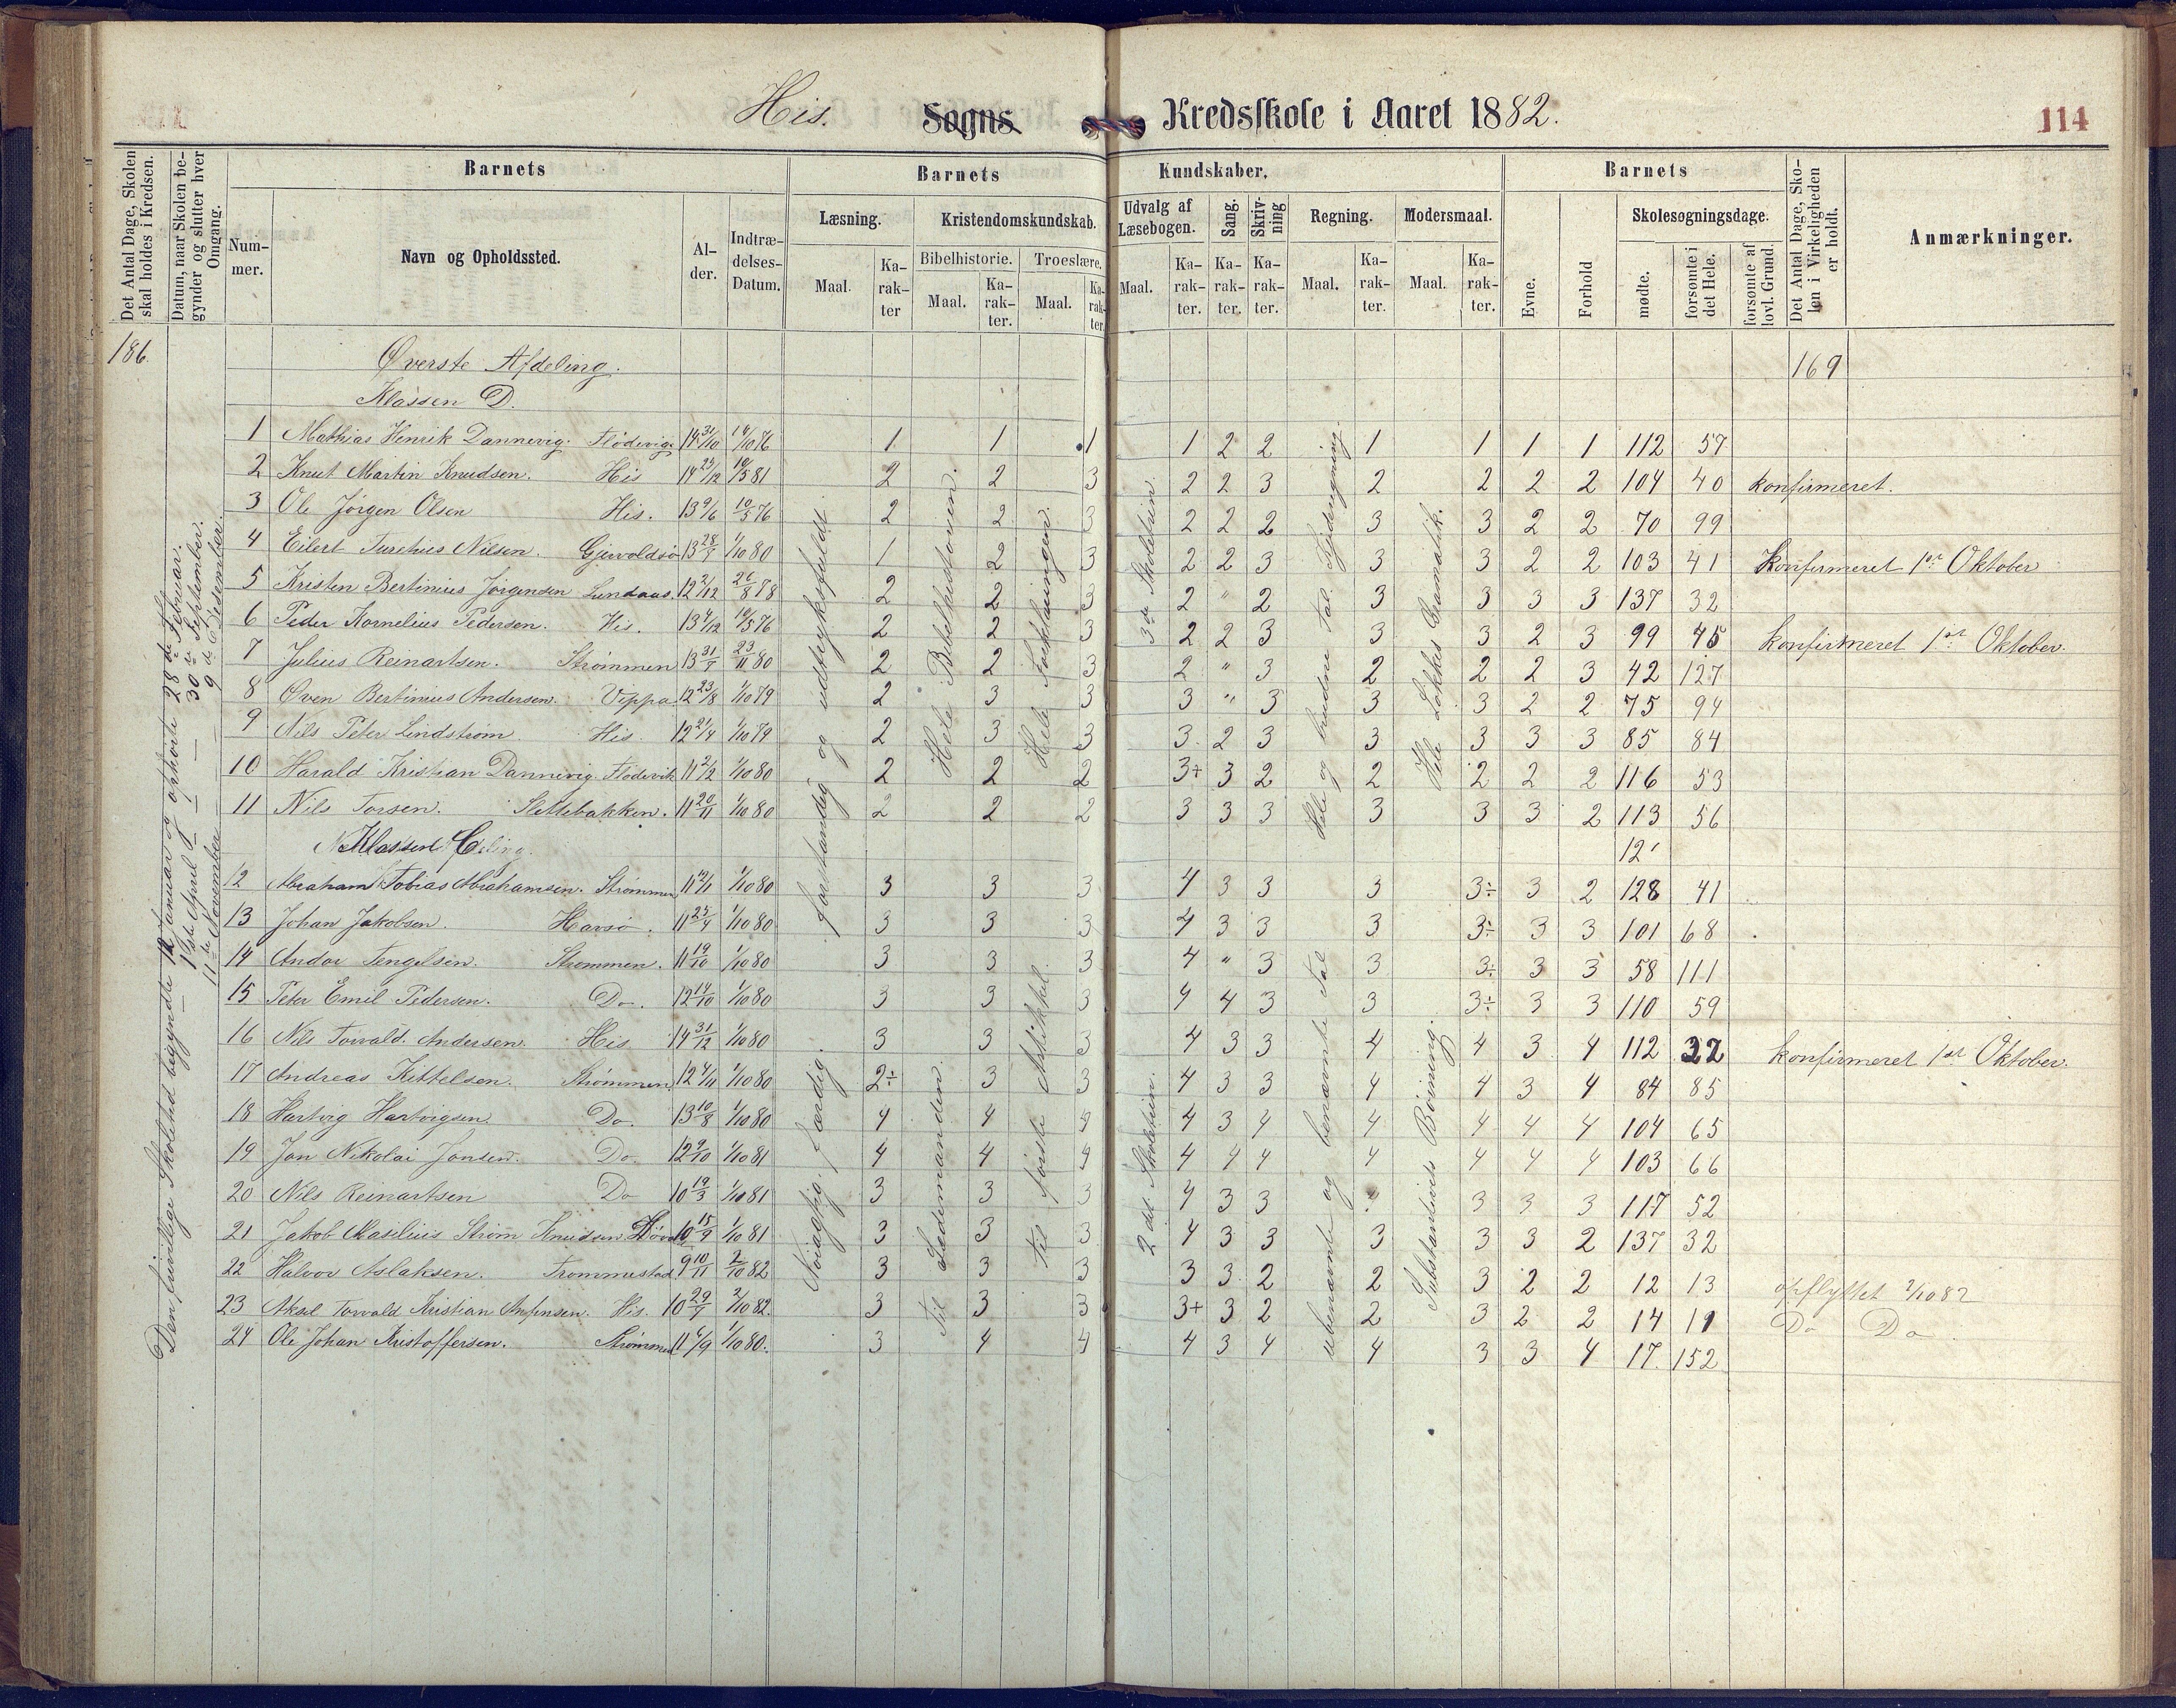 His. Sogns Kredsskole i Aaret 1882. 114
Det Antal Dage, Skolen skal holdes i Kredsen.
Datum, naar Skolen begynder og slutter hver Omgang.
Barnets
Barnets Kundskaber.
Barnets
Det Antal Dage, Skolen i Virkeligheden er holdt.
Anmærkninger.
Nummer. Navn og Opholdssted. Alder. Indtrædelses-Datum.
Læsning. Kristendomskundskab. Udvalg af Læsebogen. Sang. Skrivning Regning. Modersmaal.
Bibelhistorie. Troeslære.
Maal. Karakter Maal. Karakter. Maal. Karakter. Maal. Karakter. Karakter. Karakter. Maal. Karakter. Maal. Karakter.
Evne. Forhold Skolesøgningsdage. mødte. forsømte i det Hele. forsømte af lovl. Grund.
186. Øverste Afdeling. 169
Klassen D.
1 Mathias Henrik Dannevig. Flödevig 14 31/10 14/10 76 1 1 1 1 2 2 1 1 1 1 112 57
2 Knut Martin Knudsen. His 14 23/12 10/5 81 2 2 3 2 2 3 2 2 2 2 104 40 konfirmeret.
3 Ole Jörgen Olsen His. 13 9/6 10/5 76 2 2 3 2 2 2 3 3 2 2 70 99
4 Eilert Nilsen. 13 1/10 80 1 2 3 2 2 3 3 3 2 2 103 41 Konfirmeret 1ste Oktober
5 Kristen Bertinius Jörgensen 12 2/12 26/8 78 2 2 3 2 " 2 3 3 3 3 137 32
6 Peder Kornelius Pedersen. His. 13 4/12 10/5 76 2 2 3 2 2 3 3 3 2 3 99 45 konfirmeret 1ste Oktober.
7 Julius Reinartsen. Strömmen 13 23/11 80 2 2 3 2 " 3 2 2 2 3 42 127
8 Oven Bertinius Andersen. Vippa 12 23/8 1/10 79 2 3 3 3 " 3 3 3 2 2 75 94
9 Nils Peter Lindström His. 12 21/4 1/10 79 2 3 3 3 2 3 3 3 3 3 85 84
10 Harald Kristian Dannevig. Flödevik 11 2/2 1/10 80 2 2 2 3+ 3 2 2 2 2 2 116 53
11 Nils Torsen. Slettebakken. 11 20/11 1/10 80 2 2 2 3 3 3 3 3 3 2 113 56
Klassen C. 12
12 Abraham Tobias Abrahamsen. Strömmen 11 1/10 80 3 3 3 4 3 3 3 3÷ 3 2 128 41
13 Johan Jakobsen. Havsö. 11 25/4 1/10 80 3 3 3 4 3 3 3 3÷ 3 3 101 68
14 Andor Tengelsen. Strömmen. 11 19/10 1/10 80 3 3 3 4 " 3 3 3÷ 3 3 58 111
15 Peter Emil Pedersen. Do. 12 14/10 1/10 80 3 3 3 4 4 3 3 3÷ 3 3 110 59
16 Nils Torvald. Andersen. His. 14 31/12 1/10 80 3 3 3 4 3 3 4 4 3 4 112 32 konfirmeret 1st Oktober.
17 Andreas Kittelsen. Strömmen, 12 4/11 1/10 80 2÷ 3 3 4 3 3 4 4 3 4 84 85
18 Hartvig Hartvigsen Do. 13 10/8 1/10 80 4 4 4 4 3 4 4 4 4 4 104 65
19 Jan Nikolai Jansen. Do. 12 9/10 1/10 81 4 4 4 4 4 4 4 4 4 4 103 66
20 Nils Reinartsen Do 10 19/3 1/10 81 3 3 3 4 3 3 3 3 3 117 52
21 Jakob Maselius Ström Knudsen 10 15/9 1/10 81 3 3 3 4 3 3 3 3 3 2 137 32
22 Halvor Aslaksen. Trommestad 9 10/11 2/10 82 3 3 3 3 3 2 2 3 2 2 12 13 opflyttet 2/10 82
23 Aksel Torvald Kristian Anfinsen. His. 10 2/10 82. 3 3 3 3+ 3 2 2 3 2 2 14 11 Do Do
24 Ole Johan Kristoffersen. Strömmen 11 6/9 1/10 80. 3 4 4 4 3 4 4 3 3 4 17 152
Den frivillige Skoletid begyndte 12 Januar og ophørte 28de Februar.
1ste April — 30te September.
11te November — 9de Desember.
forstandig og udtryksfuldt.
Nöiagtig, færdig.
Hele Bibelhistorien.
Til Ledemanden.
Hele Forklaringen.
til første Artikkel.
3de Skoletrin.
2det Skoletrin.
Hele og brudne Tal.
ubenævnte og benævnte Tal
Hele Løkkes Gramatik.
Substantivets Böining.